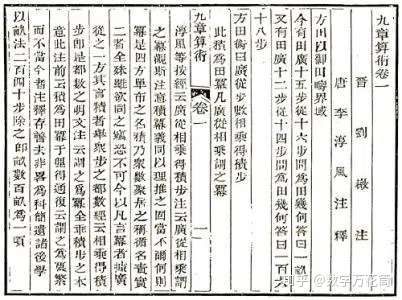 九章算術卷一
晉劉徽注
唐李淳風注釋
方田以御田疇界域
今有田廣十五步從十六步問為田幾何答曰一畝
又有田廣十二步從十四步問為田幾何答曰一百六
十八步
方田術曰廣從步數相乘得積步
此積為田冪凡廣從相乘謂之冪
九章算術 卷一 一
淳風等按經云廣從相乘得積步注云廣從相乘謂
之冪觀斯注意積冪義同以理推之固當不爾何則
冪是四方單布之名積乃眾數聚居之稱循名責實
二者全殊雖欲同之竊恐不可今以凡言冪者據廣
從之一方其言積者舉眾步之都數經云相乘得積
步即是都數之明文注云謂之為冪全乖積步之本
意此注前云積為田冪于理得通復云謂之為冪繁
而不當今者注釋存善去非畧為科簡遺諸後學
以畝法二百四十步除之即畝數百畝為一頃
知乎 @数学万花筒